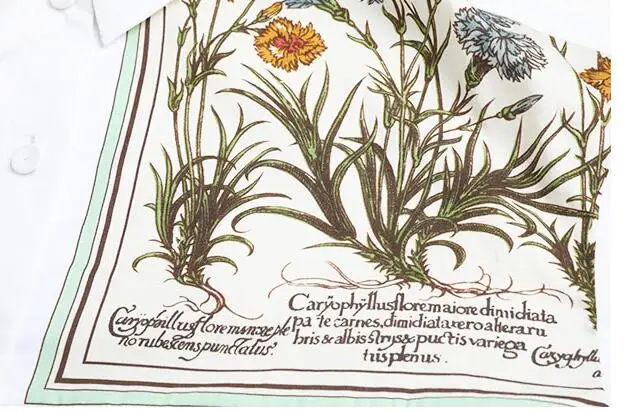 Caryophillus flore minore ple
no rubescens punctatus.
Caryophyllus flore maiore dimidiata
pa te carnes, dimidiata vero altera ru
bris & albis strys & puctis variega
tus plenus.
Caryophyllu
a